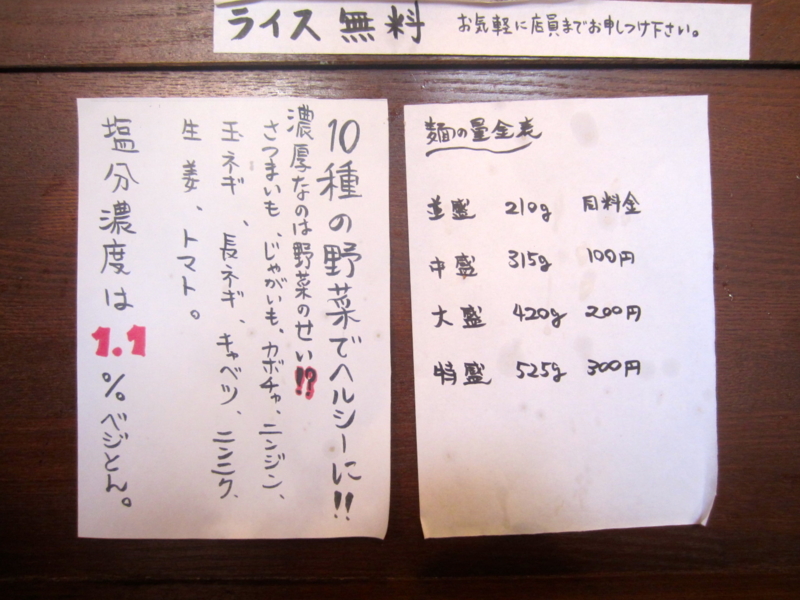 ライス 無料 お気軽に店員までお申しつけ下さい。
10種の野菜でヘルシーに!!
濃厚なのは野菜のせい!?
さつまいも、じゃがいも、カボチャ、ニンジン、
玉ネギ、長ネギ、キャベツ、ニンニク、
生姜、トマト。
塩分濃度は1.1%ベジとん。
麺の量全表
並盛 210g 同料金
中盛 315g 100円
大盛 420g 200円
特盛 525g 300円